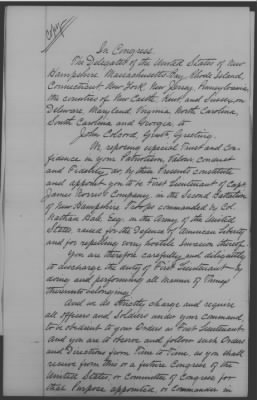 Copy
In Congress
The Delegates of the United States of New
Hampshire Massachusetts Bay Rhode Island,
Connecticut New York New Jersey, Pennsylvania,
the counties of New Castle, Kent, and Sussex, on
Delaware, Maryland, Virginia, North Carolina,
South Carolina and Georgia, to
John Colcord, Greeting.
We, reposing especial Trust and con-
fidence in your Patriotism, Valour, conduct
and Fidelity, do, by these Presents constitute
and appoint you to be First Lieutenant of Capt
James Norris Company, in the Second Battalion
of New Hampshire commanded by Col
Nathan Hale Esq. in the Army of the United
States, raised for the Defence of American Liberty
and for repelling every hostile Invasion thereof.
You are therefore carefully and diligently
to discharge the duty of First Lieutenant by
doing and performing all manner of Things
thereunto belonging.
And we do strictly charge and require
all officers and Soldiers under your command,
to be obedient to your Orders as First Lieutenant
and you are to observe and follow such Orders
and Directions from Time to Time, as you shall
receive from this or a future Congress of the
United States, or Committee of Congress for
that Purpose appointed, or Commander in